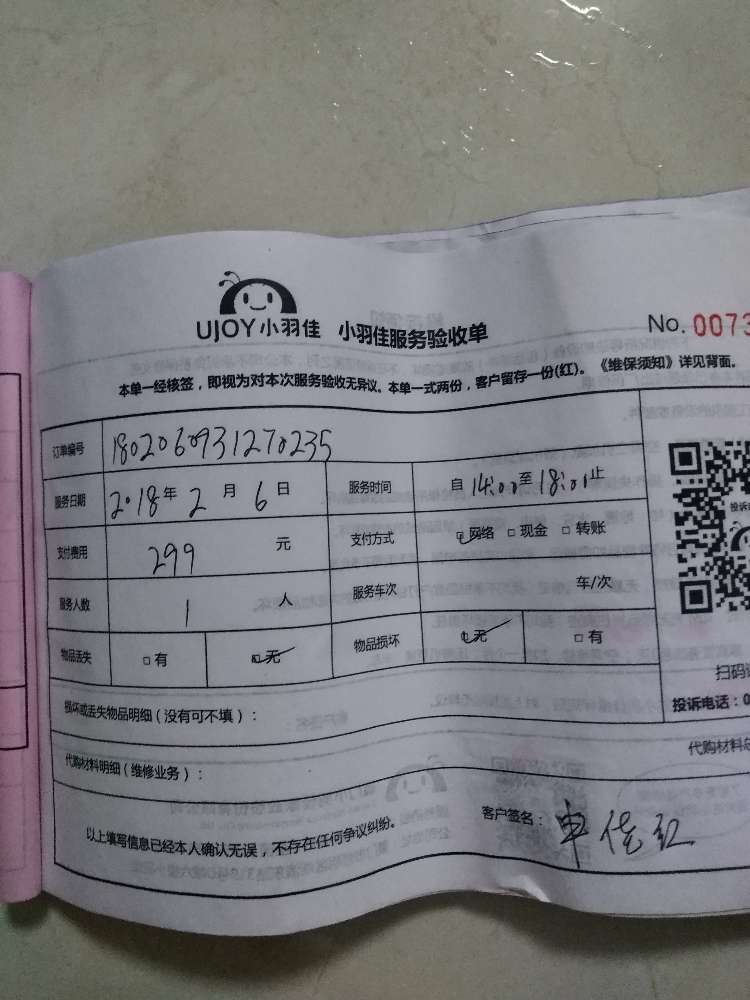 UJOY小羽佳 小羽佳服务验收单 No. 0073
本单一经核签，即视为对本次服务验收无异议。本单一式两份，客户留存一份(红)。《维保须知》详见背面。
订单编号 1802060931270235
服务日期 2018年 2月 6日 服务时间 自 14:00至18:00止
支付费用 299 元 支付方式 □网络 □现金 □转账
服务人数 1 人 服务车次 车/次
物品丢失 □有 □无 物品损坏 □无 □有
损坏或丢失物品明细（没有可不填）：
投诉电话：0
代购材料明细（维修业务）： 代购材料总
以上填写信息已经本人确认无误，不存在任何争议纠纷。 客户签名：申佳红